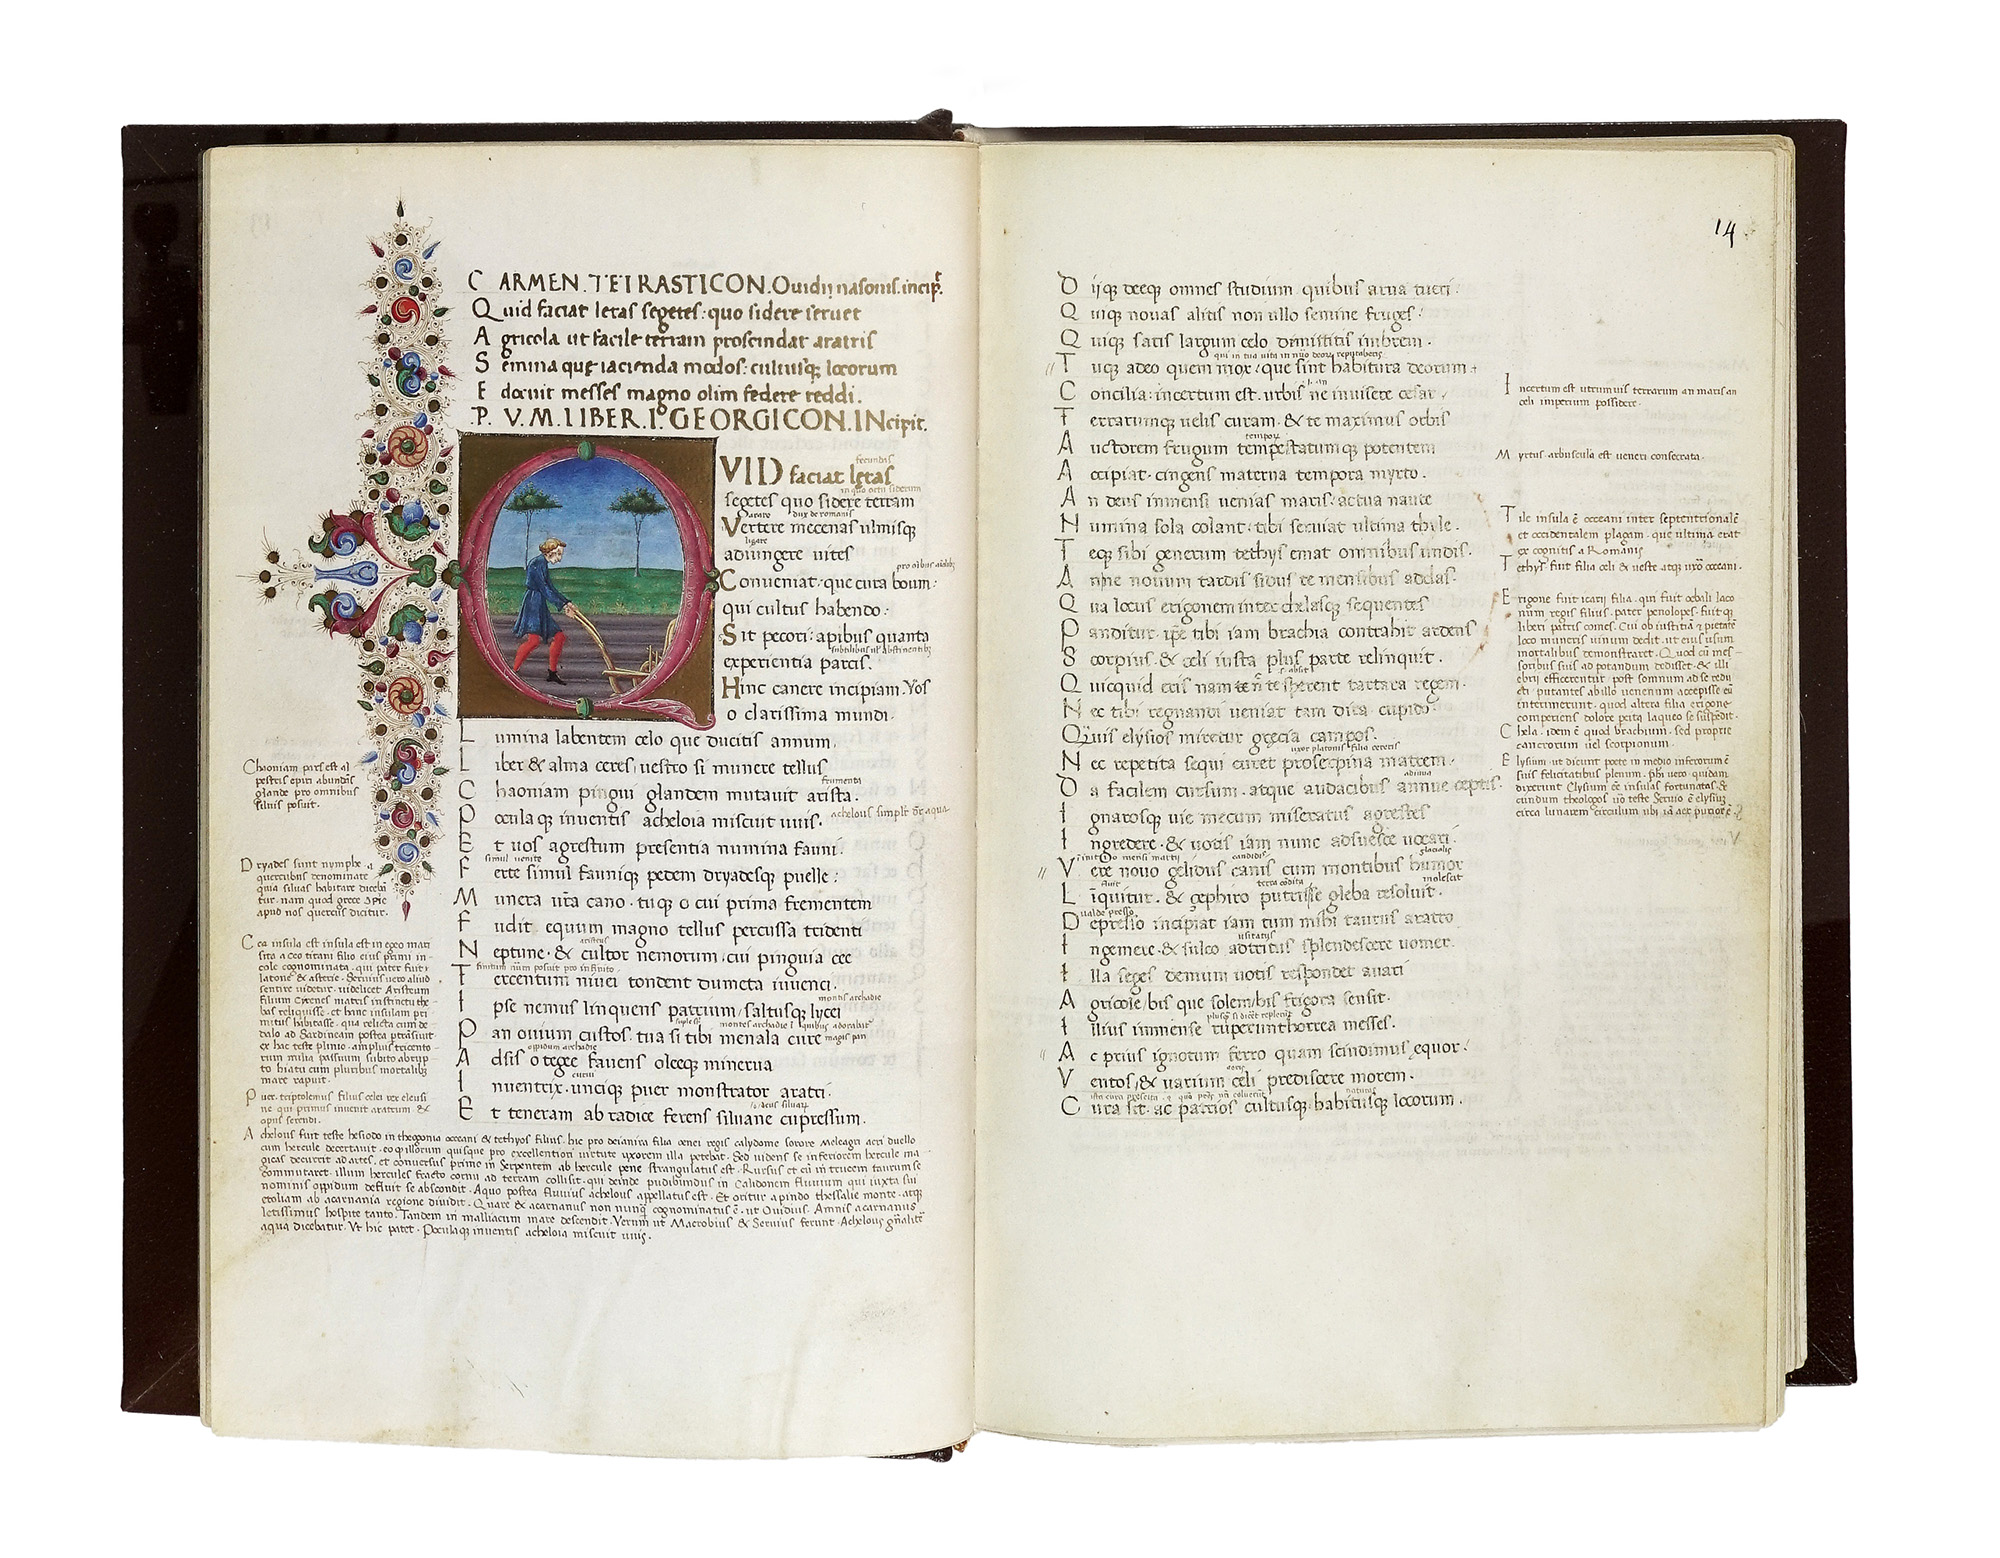 CARMEN. TETRASTICON. Ouidii nasonis. incip.
Quid faciat letas segetes: quo sidere seruet
Agricola ut facile terram proscindat aratris
Semina que iacienda modos: cultusq; locorum
Edocuit messes magno olim federe reddi.
.P. V. M. LIBER. I. GEORGICON. INcipit.
fecundas
QVID faciat letas
in quo ortu siderum
segetes quo sidere terram
arare dux de romanis
Vertere mecenas ulmisq;
ligare
adiungere uites
Conueniat: que cura boum:
qui cultus habendo:
Sit pecori: apibus quanta
experientia parcis.
Hinc canere incipiam. Vos
o clarissima mundi.
Lumina labentem celo que ducitis annum.
Liber & alma ceres, uestro si munere tellus
frumenti
Chaoniam pingui glandem mutauit arista.
Poculaq; inuentis acheloia miscuit uuis.
achelous simplr
Et uos agrestum presentia numina fauni.
simul uenite
Ferte simul fauniq; pedem dryadesq; puelle:
Munera ura cano. tuq; o cui prima frementem
Fudit equum magno tellus percussa tridenti
aristeus
Neptune. & cultor nemorum. cui pinguia cee
Tercentum niuei tondent dumeta iuuenci.
montis archadie
Ipse nemus linquens patrium, saltusq; lycei
Pan ouium custos. tua si tibi menala cure
oppidum archadie
Adsis o tegee fauens oleeq; minerua
Inuentrix. unciq; puer monstrator aratri.
Et teneram ab radice ferens siluane cupressum.
Chioniam pars est al
pestris epiri abundans
glande pro omnibus
siluis posuit.
Dryades sunt nymphe. a
quercibus denominate
quia siluas habitare dicebã
tur. nam quod grece
apud nos quercus dicitur.
Cea insula est insula est in egeo mari
sita a ceo titani filio eius primi in-
cole cognominata. qui pater fuit
latone & asterie. Seruius uero aliud
sentire uidetur. uidelicet Aristeum
filium Cyrenes matris instinctu the-
bas reliquisse. et hanc insulam pri
mitus habitasse. qua relicta cum de
dalo ad Sardineam postea
ex hac teste plinio. amplius trecento
rum milia passuum subito abrup-
to hiatu cum pluribus mortalib;
mare rapuit.
Puer. triptolemus filius celei rex eleusi
ne qui primus inuenit aratrum &
opus serendi.
Achelous fuit teste hesiodo in theogonia occeani & tethyos filius. hic pro deianira filia oenei regis calydonie sorore Meleagri acri duello
cum hercule decertauit. eo quisque pro excellentiori uirtute uxorem illa petebat. Sed uidens se inferiorem hercule ma
gicas decurrit ad artes. et conuersus primo in Serpentem ab hercule pene strangulatus est. Rursus et cũ in trucem taurum se
commutaret. illum hercules fracto cornu ad terram collisit. qui deinde pudibundus in Calidonem fluuium qui iuxta sui
nominis oppidum defluit se abscondit. A quo postea fluuius achelous appellatus est. Et oritur a pindo thessalie monte. atq;
etoliam ab acarnania regione diuidit. Quare & acarnanus non nunq; cognominatus ẽ. ut Ouidius. Amnis acarnanus
letissimus hospite tanto. Tandem in malliacum mare descendit. Verum ut Macrobius & Seruius ferunt. Achelous gñalitẽ
aqua dicebatur. Vt hic patet. Poculaq; inuentis acheloia miscuit uuis.
14
Diiq; deeq; omnes studium quibus arua tueri.
Quiq; nouas alitis non ullo semine fruges:
Quiq; satis largum celo dimittitis imbrem.
Tuq; adeo quem mox, que sint habitura deorum
Concilia: incertum est. urbis ne inuisere cesar,
Terrarumq; uelis curam. & te maximus orbis
Auctorem frugum tempestatumq; potentem
Accipiat. cingens materna tempora myrto.
An deus inmensi uenias maris: ac tua naute
Numina sola colant: tibi seruiat ultima thile.
Teq; sibi generum tethys emat omnibus undis.
Anne nouum tardis sidus te mensibus addas.
Qua locus erigonem inter chelasq; sequentes
Panditur. ipse tibi iam brachia contrahit ardens
Scorpius. & celi iusta plus parte relinquit.
Quicquid eris nam te sperent tartara regem.
Nec tibi regnandi ueniat tam dira cupido.
Quis elysios miretur grecia campos.
uxor plutonis filia cereris
Nec repetita sequi curet proserpina matrem.
adiuua
Da facilem cursum. atque audacibus annue ceptis.
Ignarosq; uie mecum miseratus agrestes
Ingredere. & uotis iam nunc adsuesce uocari.
glacialis
Vere nouo gelidus canis cum montibus humor
Liquitur. & zephiro putris se gleba resoluit.
ualde presso
Depresso incipiat iam tum mihi taurus aratro
Ingemere. & sulco adtritus splendescere uomer.
Illa seges demum uotis respondet auari
Agricole, bis que solem, bis frigora sensit.
Illius immense ruperunt horrea messes.
Ac prius ignotum ferro quam scindimus equor.
Ventos, & uarium celi prediscere morem.
Cura sit. ac patrios cultusq; habitusq; locorum.
Incertum est utrum uis terrarum an maris an
celi imperium possidere.
Myrtus. arbuscula est ueneri consecrata.
Tile insula ẽ occeani inter septentrionalẽ
et occidentalem plagam. que ultima erat
ex cognitis a Romanis
Tethys fuit filia celi & ueste atq; uxor occeani.
Erigone fuit icarii filia. qui fuit oebali laco
num regis filius. pater penolopes. fuitq;
liberi patris comes. Cui ob iustitiã & pietatẽ
loco muneris uinum dedit. ut eius usum
mortalibus demonstraret. Quod cũ mes-
soribus suis ad potandum dedisset. & illi
ebrij efficerentur post somnum ad se redu
cti. putantes ab illo uenenum accepisse eũ
interimerunt. quod altera filia erigone
comperiens dolore percita laqueo se suspẽdit.
Chela. idem ẽ quod brachium. sed proprie
cancrorum uel scorpionum.
Elysium. ut dicunt poete in medio inferorum ẽ
suis felicitatibus plenum. phi uero quidam
dixerunt Elysium eẽ insulas fortunatas. &
secundum theologos uõ teste Seruio ẽ elysiũ
circa lunarem circulum ubi iã aer purior ẽ.